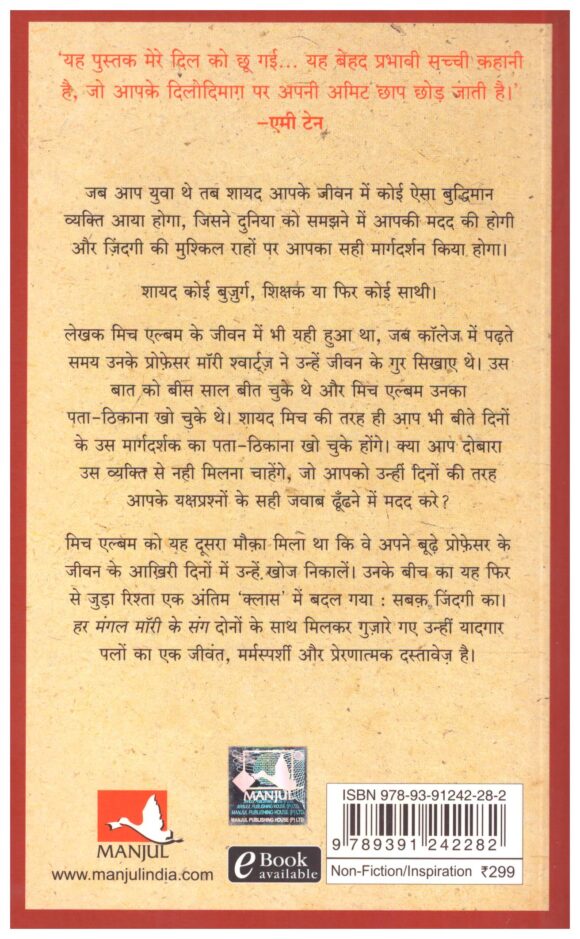 ‘यह पुस्तक मेरे दिल को छू गई... यह बेहद प्रभावी सच्ची कहानी
है, जो आपके दिलोदिमाग़ पर अपनी अमिट छाप छोड़ जाती है।’
–एमी टेन
जब आप युवा थे तब शायद आपके जीवन में कोई ऐसा बुद्धिमान
व्यक्ति आया होगा, जिसने दुनिया को समझने में आपकी मदद की होगी
और ज़िंदगी की मुश्किल राहों पर आपका सही मार्गदर्शन किया होगा।
शायद कोई बुज़ुर्ग, शिक्षक या फिर कोई साथी।
लेखक मिच एल्बम के जीवन में भी यही हुआ था, जब कॉलेज में पढ़ते
समय उनके प्रोफ़ेसर मॉरी श्वार्ट्ज़ ने उन्हें जीवन के गुर सिखाए थे। उस
बात को बीस साल बीत चुके थे और मिच एल्बम उनका
पता-ठिकाना खो चुके थे। शायद मिच की तरह ही आप भी बीते दिनों
के उस मार्गदर्शक का पता-ठिकाना खो चुके होंगे। क्या आप दोबारा
उस व्यक्ति से नही मिलना चाहेंगे, जो आपको उन्हीं दिनों की तरह
आपके यक्षप्रश्नों के सही जवाब ढूँढने में मदद करे?
मिच एल्बम को यह दूसरा मौक़ा मिला था कि वे अपने बूढ़े प्रोफ़ेसर के
जीवन के आख़िरी दिनों में उन्हें खोज निकालें। उनके बीच का यह फिर
से जुड़ा रिश्ता एक अंतिम ‘क्लास’ में बदल गया : सबक़ ज़िंदगी का।
हर मंगल मॉरी के संग दोनों के साथ मिलकर गुज़ारे गए उन्हीं यादगार
पलों का एक जीवंत, मर्मस्पर्शी और प्रेरणात्मक दस्तावेज़ है।
MANJUL
www.manjulindia.com
MANJUL
MANJUL PUBLISHING HOUSE (P) LTD
MANJUL PUBLISHING HOUSE (P) LTD
MANJUL PUBLISHING HOUSE (P) LTD
eBook
available
ISBN 978-93-91242-28-2
9 789391 242282
Non-Fiction/Inspiration ₹299